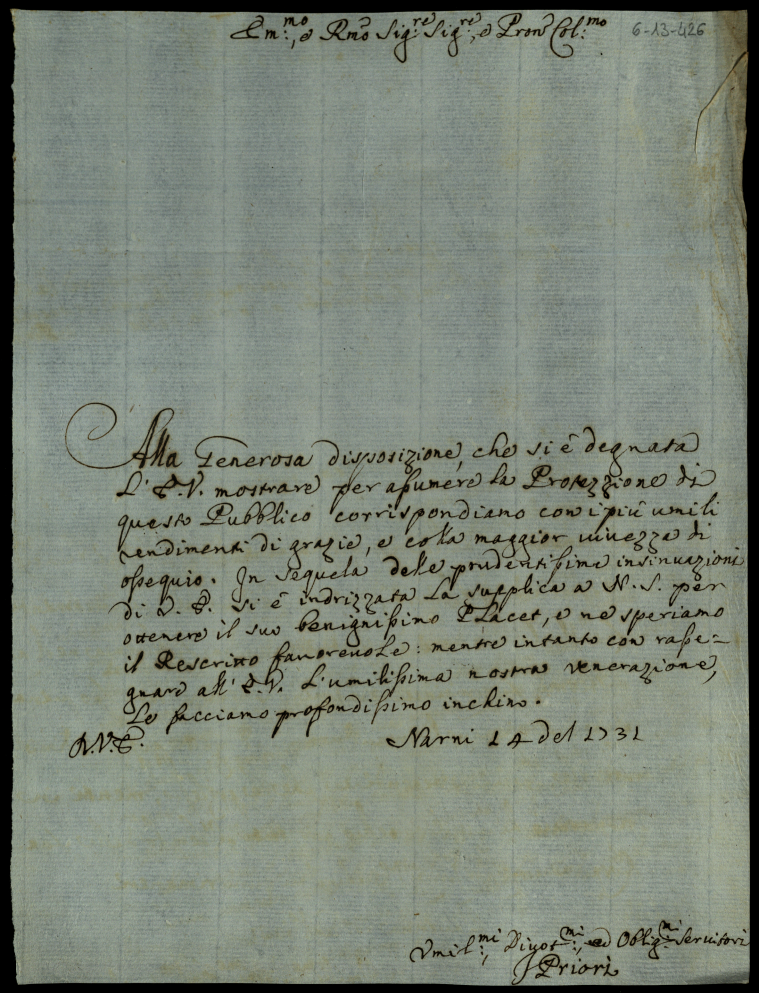 Em:mo, e Rmo Sig:re Sig:re, e Pron Col:mo
6-13-426
Alla Generosa disposizione, che si è degnata
L'E.V. mostrare per assumere la Protezzione di
questo Pubblico corrispondiamo con i più umili
rendimenti di grazie, e colla maggior vivezza di
ossequio. In sequela delle prudentissime insinuazioni
di V.E. si è indrizzata la supplica a N.S. per
ottenere il suo benignissimo Placet, e ne speriamo
il Rescritto favorevole: mentre intanto con rasse-
gnare all'E.V. l'umilissima nostra venerazione,
Le facciamo profondissimo inchino.
D.V.E. Narni 14 del 1731
Umil:mi, Divot:mi, ed Oblig:mi Servitori
Priori